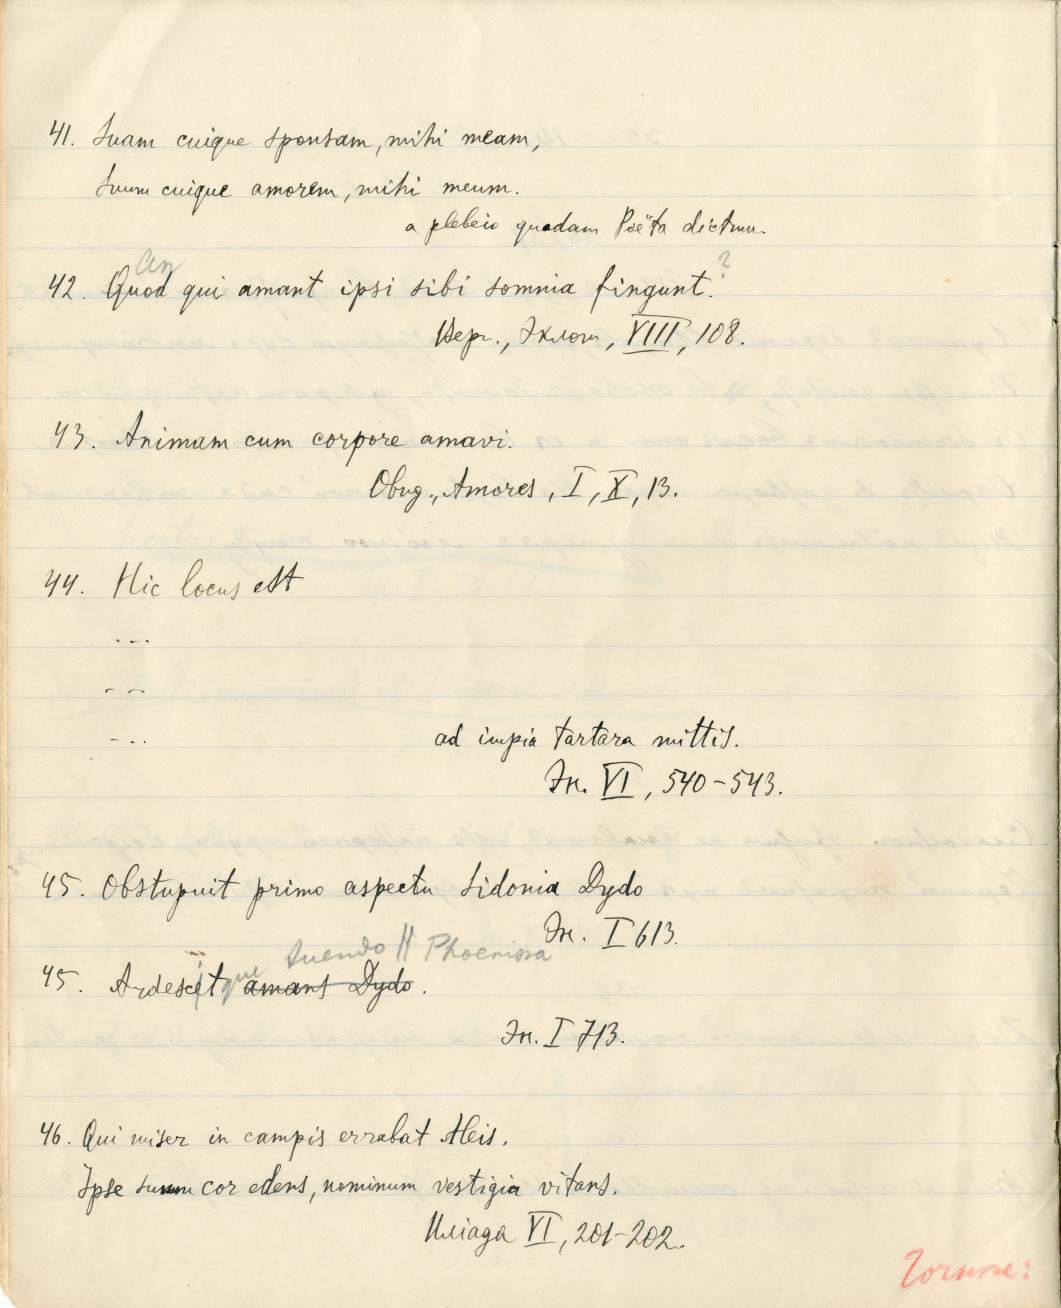 41. Suam cuique sponsam, mihi meam,
Suum cuique amorem, mihi meum.
a plebeio quodam Poëta dictum.
an ?
42. Quod qui amant ipsi sibi somnia fingunt.
Верг., Эклоги, VIII, 108.
43. Animam cum corpore amavi.
Овид., Amores, I, X, 13.
44. Hic locus est
...
...
...
ad impia tartara mittit.
Эн. VI, 540-543.
45. Obstupuit primo aspectu Sidonia Dydo
Эн. I 613.
que tuendo || Phoenissa
45. Ardescit amans Dydo.
Эн. I 713.
46. Qui miser in campis errabat Aleis.
Ipse suum cor edens, nominum vestigia vitans.
Иліада VI, 201-202.